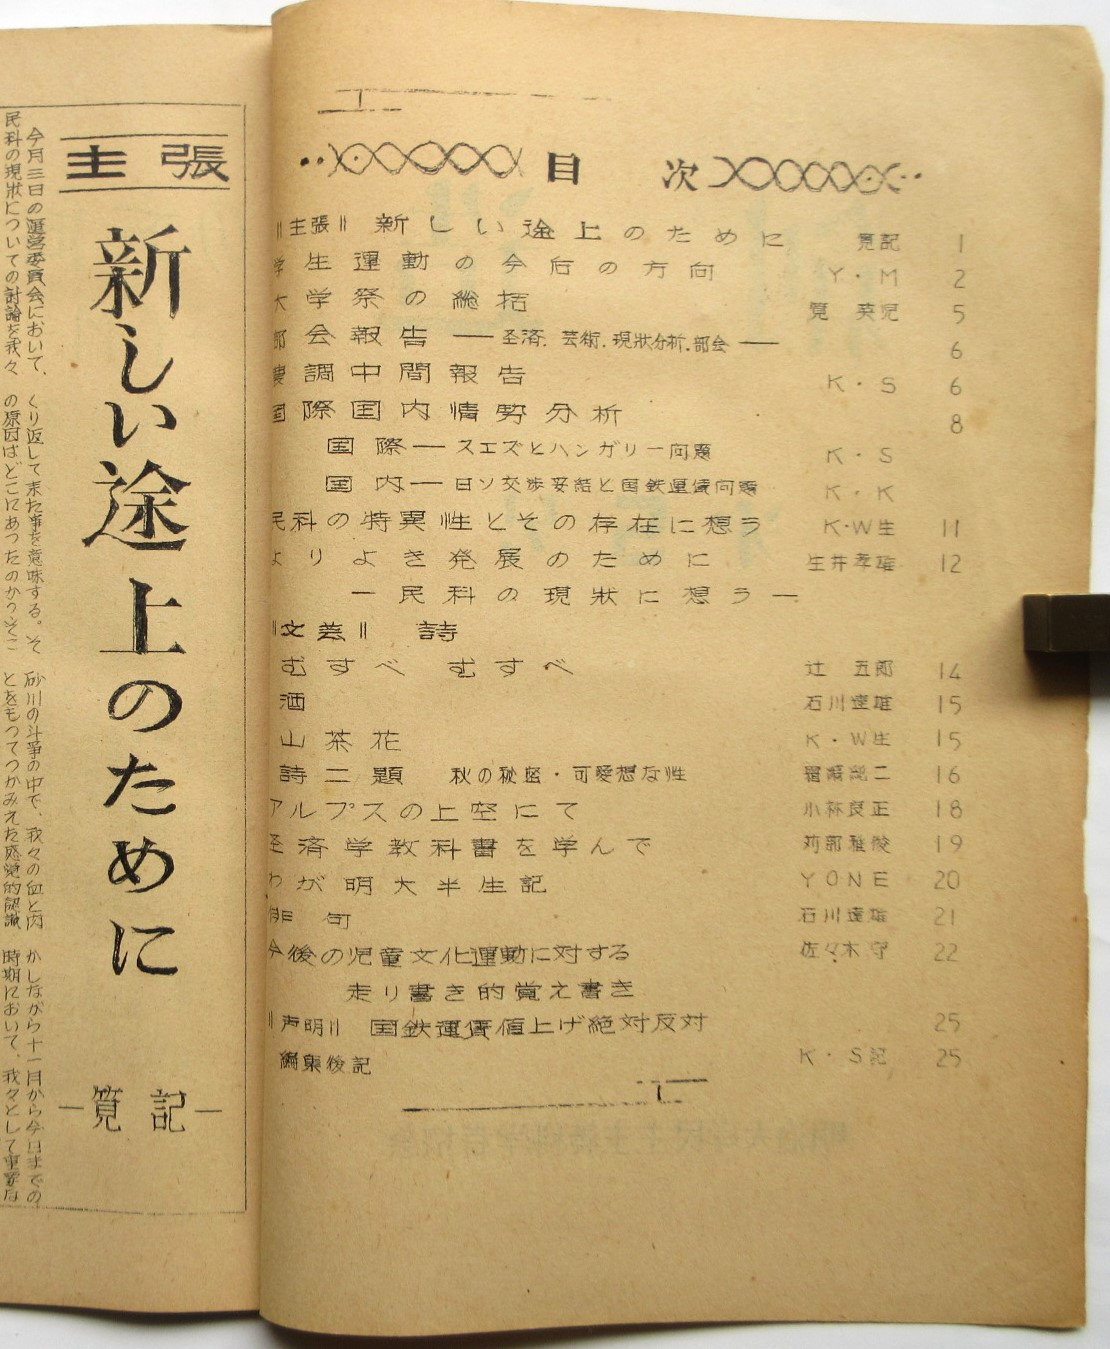 目 次
‖主張‖ 新しい途上のために 筧記 1
学生運動の今后の方向 Y・M 2
大学祭の総括 筧 英児 5
部会報告 ── 圣済.芸術.現狀分析.部会 ── 6
農調中間報告 K・S 6
国際国内情勢分析 8
国際 ─ スエズとハンガリー问題 K・S
国内 ─ 日ソ交渉妥結と国鉄運賃问題 K・K
民科の特異性とその存在に想う K・W生 11
よりよき発展のために 生井孝雄 12
─ 民科の現狀に想う ─
‖文芸‖ 詩
むすべ むすべ 辻 五郎 14
酒 石川達雄 15
山茶花 K・W生 15
詩二題 秋の秘密・可愛想な性 二 16
アルプスの上空にて 小林良正 18
圣済学教科書を学んで 苅部雅俊 19
わが明大半生記 YONE 20
俳句 石川達雄 21
今後の児童文化運動に対する 佐々木守 22
走り書き的覚え書き
‖声明‖ 国鉄運賃値上げ絶対反対 25
編集後記 K・S記 25
主張
新しい途上のために
─ 筧 記 ─
今月三日の運営委員会において、
民科の現狀についての討論を我々
くり返して来た事を意味する。そ
の原因はどこにあったのか？そこ
砂川の斗争の中で、我々の血と肉
とをもってつかみえた感覚的認識
かしながら十一月から今日までの
時期において、我々として重要な